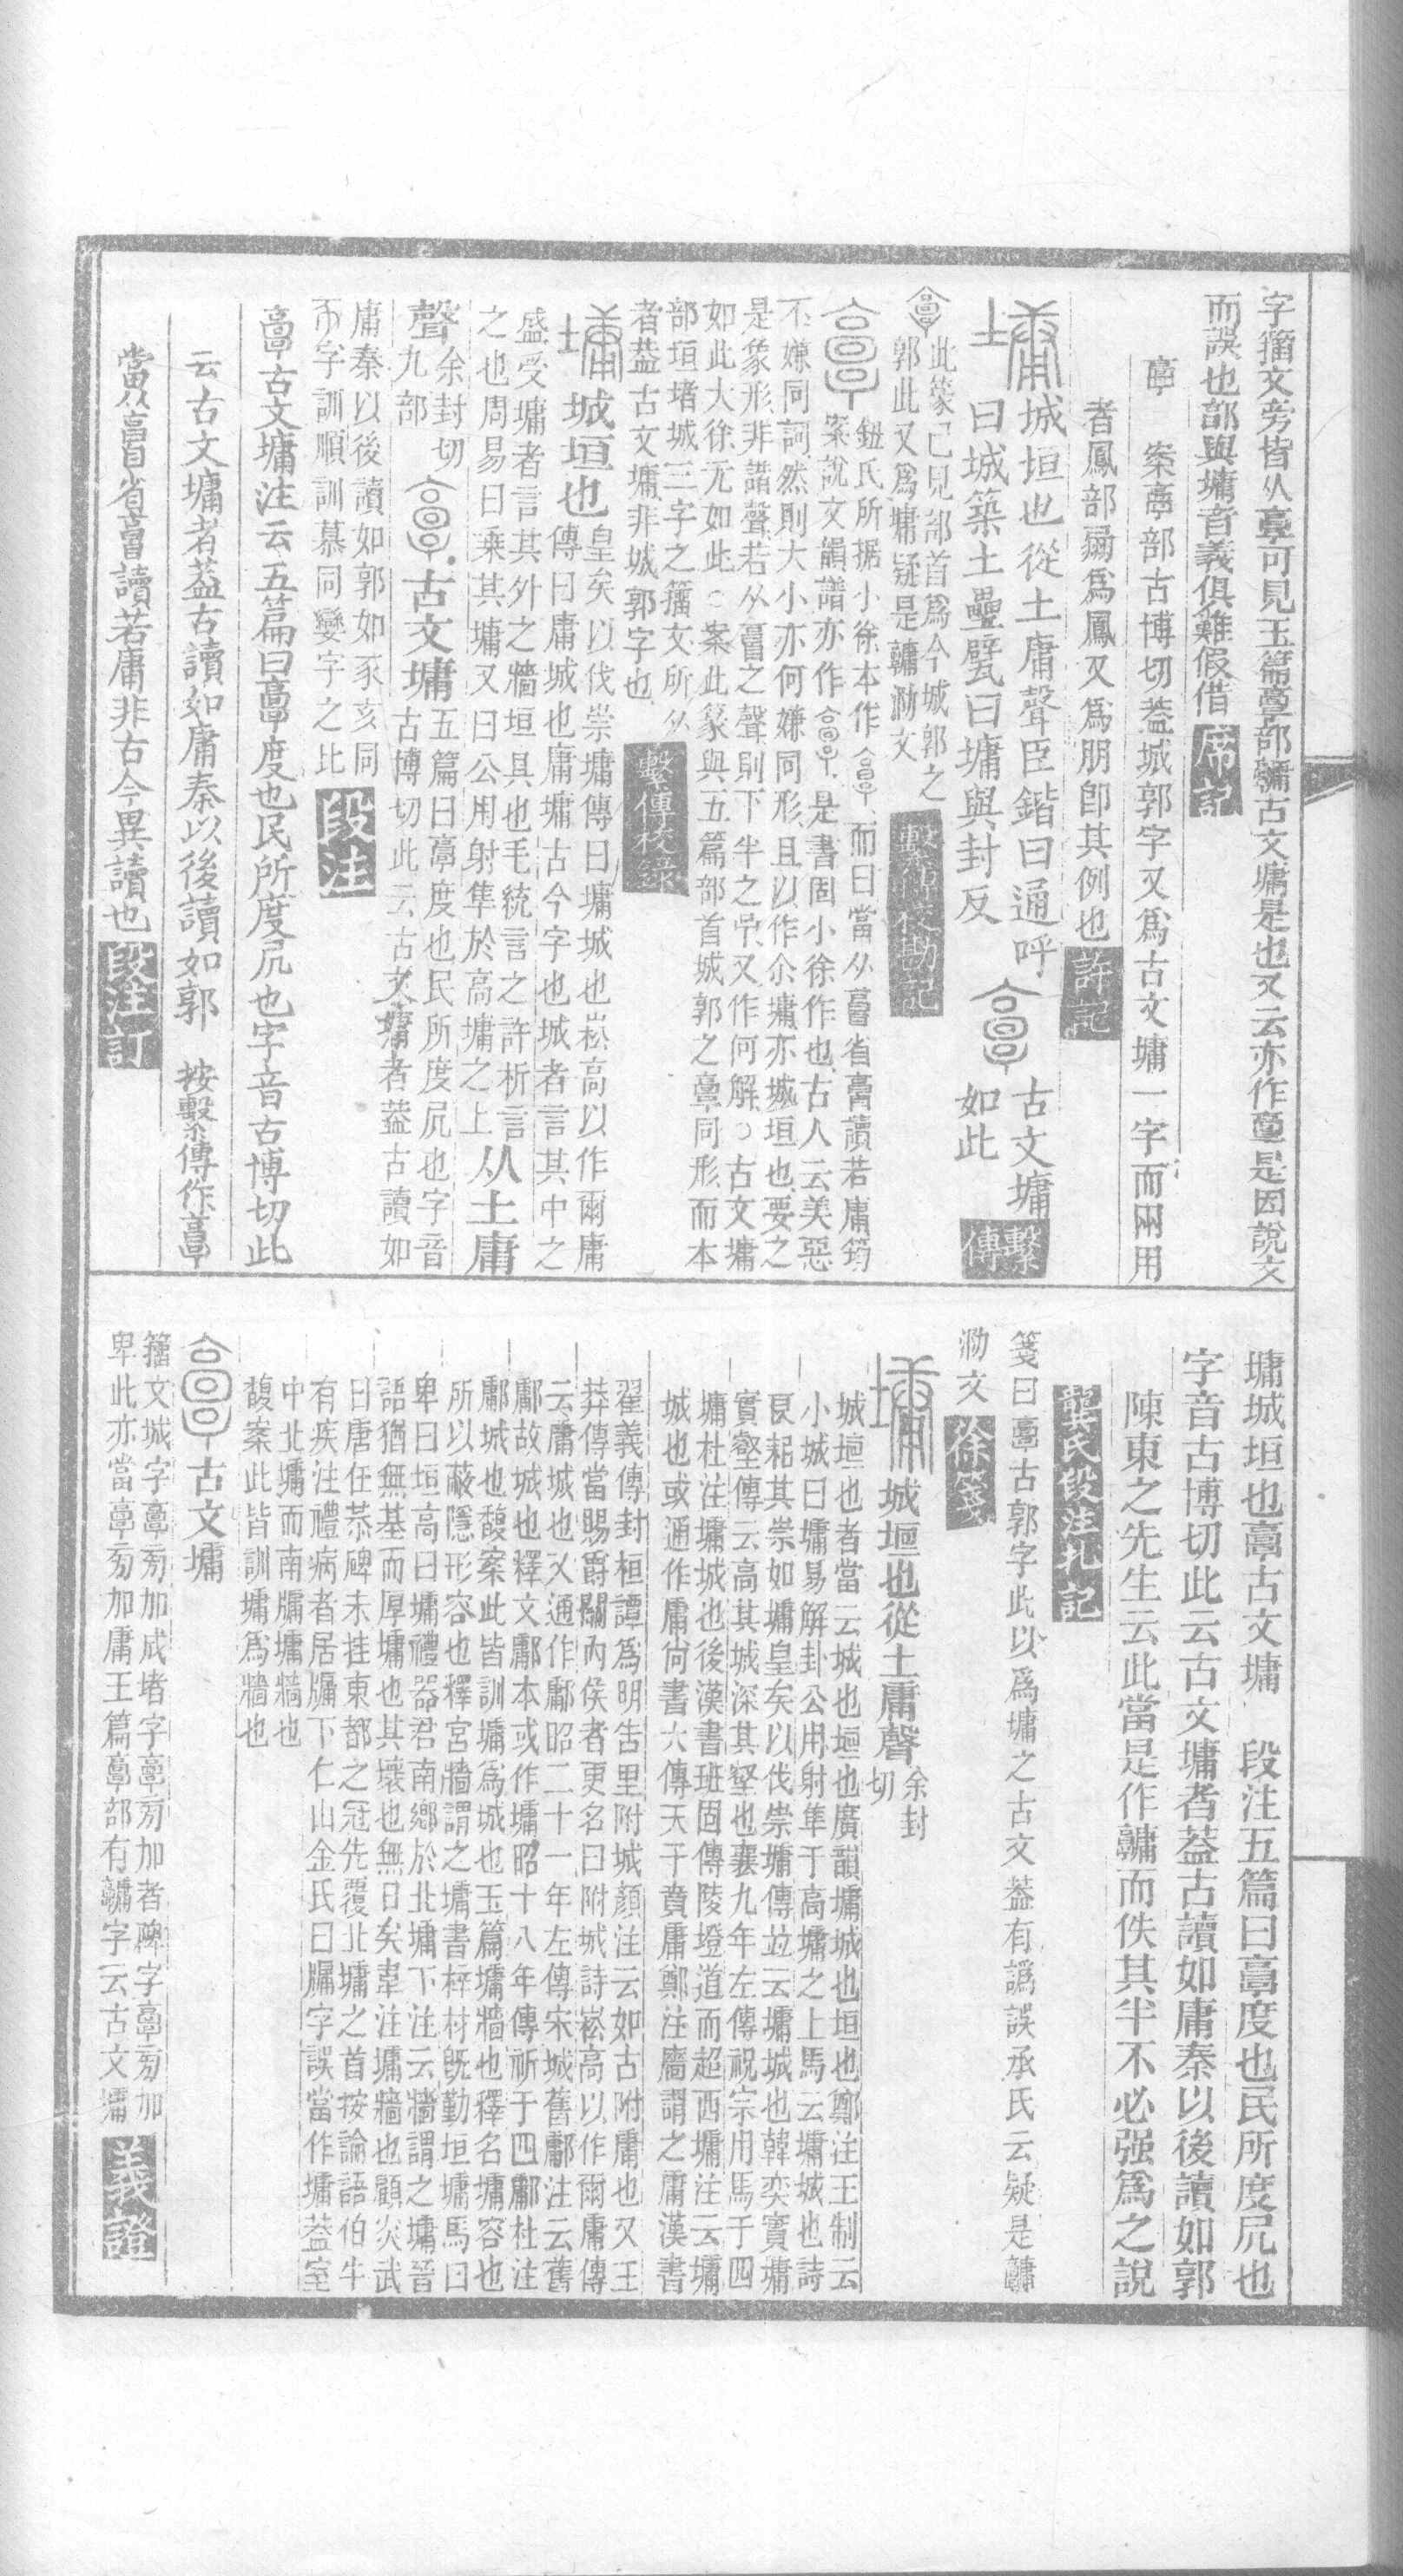 字籀文旁皆从𩫖可見玉篇𩫖部𩫏古文墉是也又云亦作𩫖是因說文
而誤也部與墉音義俱難假借 席記
𩫖 案𩫖部古博切葢城郭字又爲古文墉一字而兩用
者鳳部𠕀爲鳳又爲朋卽其例也 許記
墉 城垣也從土庸聲臣鍇曰通呼
曰城築土壘甓曰墉與封反
𩫖 古文墉
如此 繫傳
𩫖 此篆已見部首爲今城郭之
郭此又爲墉疑是𩫏泐文 繫傳校勘記
𩫖 鈕氏所据小徐本作𩫖而曰當从𩫖省𩫖讀若庸筠
案說文韻譜亦作𩫖是書固小徐作也古人云美惡
不嫌同詞然則大小亦何嫌同形且以作尒墉亦城垣也要之
是象形非諧聲若从𩫖之聲則下半之𠅘又作何解○古文墉
如此大徐无如此○案此篆與五篇部首城郭之𩫖同形而本
部垣堵城三字之籀文所从
者葢古文墉非城郭字也 繫傳校錄
墉 城垣也 皇矣以伐崇墉傳曰墉城也崧高以作爾庸
傳曰庸城也庸墉古今字也城者言其中之
盛受墉者言其外之牆垣具也毛統言之許析言
之也周易曰乘其墉又曰公用射隼於高墉之上 从土庸
聲 余封切
九部 𩫖 古文墉 五篇曰𩫖度也民所度凥也字音
古博切此云古文墉者葢古讀如
庸秦以後讀如郭如豕亥同
而字訓順訓慕同孌字之比 段注
𩫖古文墉注云五篇曰𩫖度也民所度凥也字音古博切此
云古文墉者葢古讀如庸秦以後讀如郭 按繫傳作𩫖
當从𩫖省𩫖讀若庸非古今異讀也 段注訂
墉城垣也𩫖古文墉 段注五篇曰𩫖度也民所度凥也
字音古博切此云古文墉者葢古讀如庸秦以後讀如郭
陳東之先生云此當是作𩫏而佚其半不必强爲之說
龔氏段注札記
箋曰𩫖古郭字此以爲墉之古文葢有譌誤承氏云疑是𩫏
泐文 徐箋
墉 城垣也從土庸聲 余封
切
城垣也者當云城也垣也廣韻墉城也垣也鄭注王制云
小城曰墉易解卦公用射隼于高墉之上馬云墉城也詩
良耜其崇如墉皇矣以伐崇墉傳竝云墉城也韓奕實墉
實壑傳云高其城深其壑也襄九年左傳祝宗用馬于四
墉杜注墉城也後漢書班固傳陵墱道而超西墉注云墉
城也或通作庸尙書大傳天子賁庸鄭注牆謂之庸漢書
翟義傳封桓譚爲明告里附城顏注云如古附庸也又王
莽傳當賜爵關內侯者更名曰附城詩崧高以作爾庸傳
云庸城也又通作鄘昭二十一年左傳宋城舊鄘注云舊
鄘故城也釋文鄘本或作墉昭十八年傳祈于四鄘杜注
鄘城也馥案此皆訓墉爲城也玉篇墉牆也釋名墉容也
所以蔽隱形容也釋宮牆謂之墉書梓材旣勤垣墉馬曰
卑曰垣高曰墉禮器君南鄉於北墉下注云牆謂之墉晉
語猶無基而厚墉也其壞也無日矣韋注墉牆也顧炎武
曰唐任恭碑未挂東都之冠先覆北墉之首按論語伯牛
有疾注禮病者居牖下仁山金氏曰牖字誤當作墉葢室
中北墉而南牖墉牆也
馥案此皆訓墉爲牆也
𩫖 古文墉
籀文城字𩫖㫄加成堵字𩫖㫄加者陴字𩫖㫄加
卑此亦當𩫖㫄加庸王篇𩫖部有𩫏字云古文墉 義證